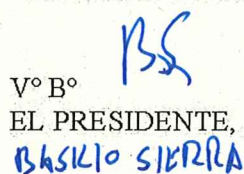 Vº Bº
EL PRESIDENTE,
BASILIO SIERRA